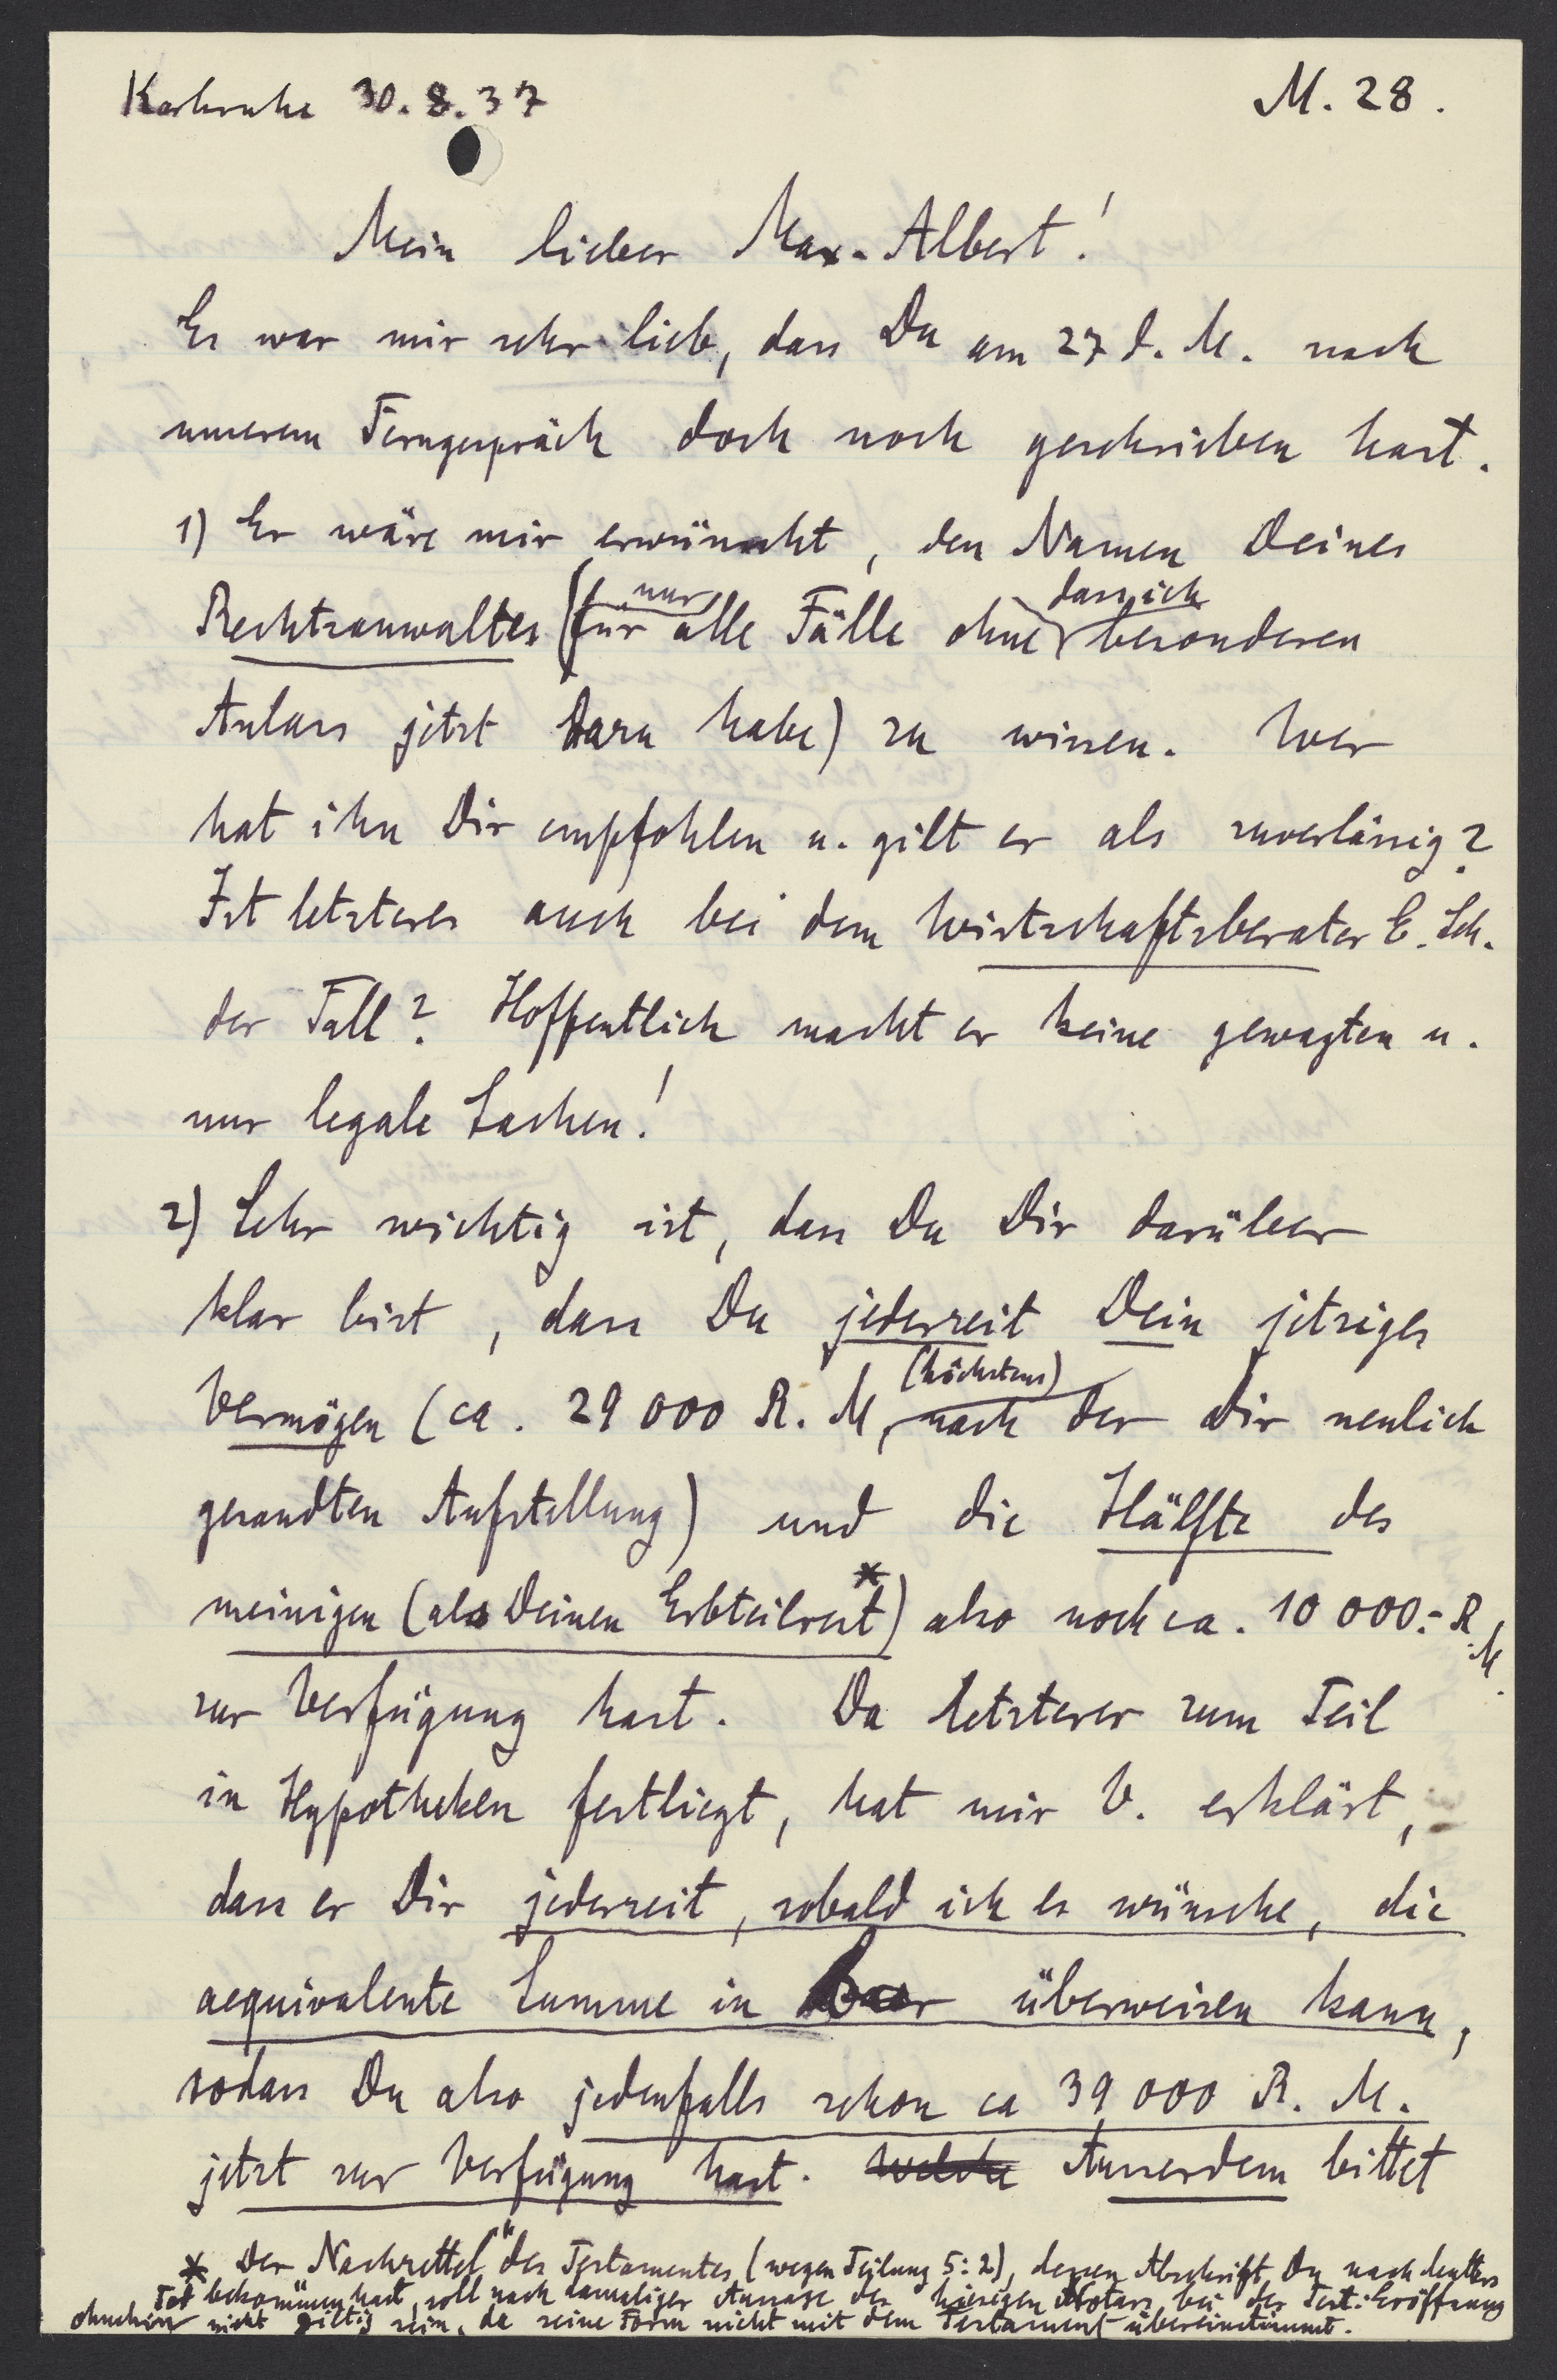 Karlsruhe 30.8.37
M. 28.
Mein lieber Max-Albert!
Es war mir sehr lieb, dass Du am 27 d. M. nach
unserem Ferngespräch doch noch geschrieben hast.
1) Es wäre mir erwünscht, den Namen Deines
Rechtsanwaltes (nur für alle Fälle ohne dass ich besonderen
Anlass jetzt dazu habe) zu wissen. Wer
hat ihn Dir empfohlen u. gilt er als zuverlässig?
Ist letzteres auch bei dem Wirtschaftsberater E. Sch.
der Fall? Hoffentlich macht er keine gewagten u.
nur legale Sachen!
2) Sehr wichtig ist, dass Du Dir darüber
klar bist, dass Du jederzeit Dein jetziges
Vermögen (ca. 29 000 R. M, (höchstens) nach der Dir neulich
gesandten Aufstellung) und die Hälfte des
meinigen (als Deinen Erbteilrest*) also noch ca. 10 000.- R.M.
zur Verfügung hast. Da letzterer zum Teil
in Hypotheken festliegt, hat mir V. erklärt,
dass er Dir jederzeit, sobald ich es wünsche, die
aequivalente Summe in Baar überweisen kann,
sodass Du also jedenfalls schon ca 39 000 R. M.
jetzt zur Verfügung hast. welche Ausserdem bittet
* Der Nachzettel" des Testamentes (wegen Teilung 5:2), dessen Abschrift Du nach
Tot bekommen hast, soll nach damaliger Aussage des hiesigen Notars, bei der Test. Eröffnung
ohnehin nicht giltig sein, da seine Form nicht mit dem Testament übereinstimmt.